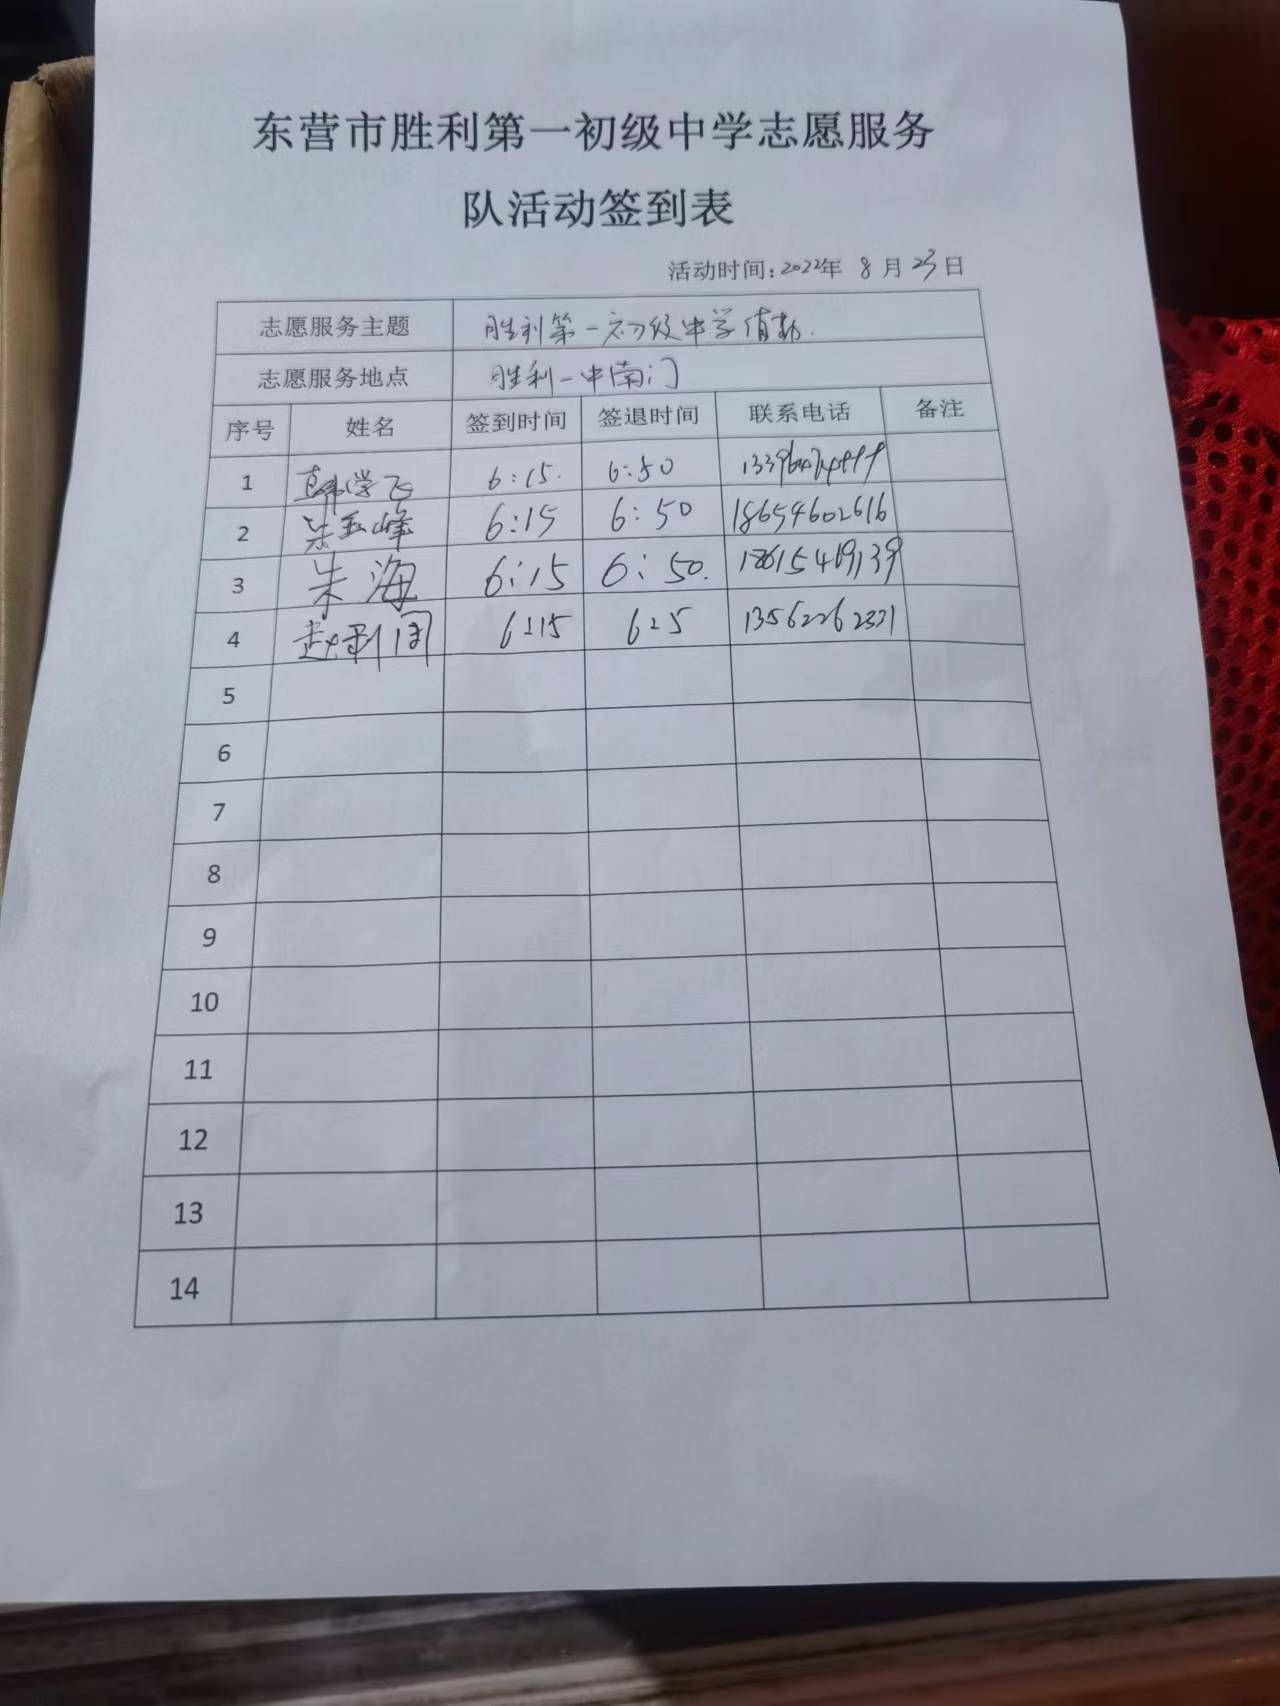 东营市胜利第一初级中学志愿服务
队活动签到表
活动时间：2022年 8月23日
志愿服务主题 胜利第一初级中学值勤.
志愿服务地点 胜利一中南门
序号 姓名 签到时间 签退时间 联系电话 备注
1 韩学飞 6:15. 6:50
2 朱玉峰 6:15 6:50 18654602616
3 朱海 6:15 6:50.
4 6:15 13562262321
5
6
7
8
9
10
11
12
13
14